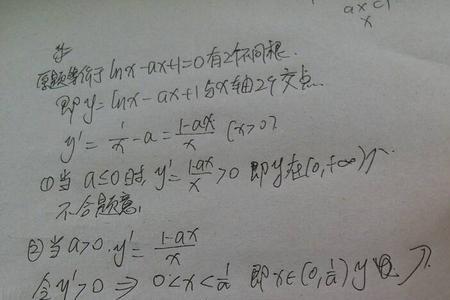 ax<1
x
解
原题等价于 lnx-ax+1=0 有2个不同根.
即 y=lnx-ax+1 与x轴2个交点.
y'=1/x-a=(1-ax)/x (x>0).
①当 a≤0时, y'=(1-ax)/x>0 即y在(0,+∞)↗.
不合题意,
②当a>0. y'=(1-ax)/x
令y'>0 ⇒ 0<x<1/a 即x∈(0,1/a) y ↗.